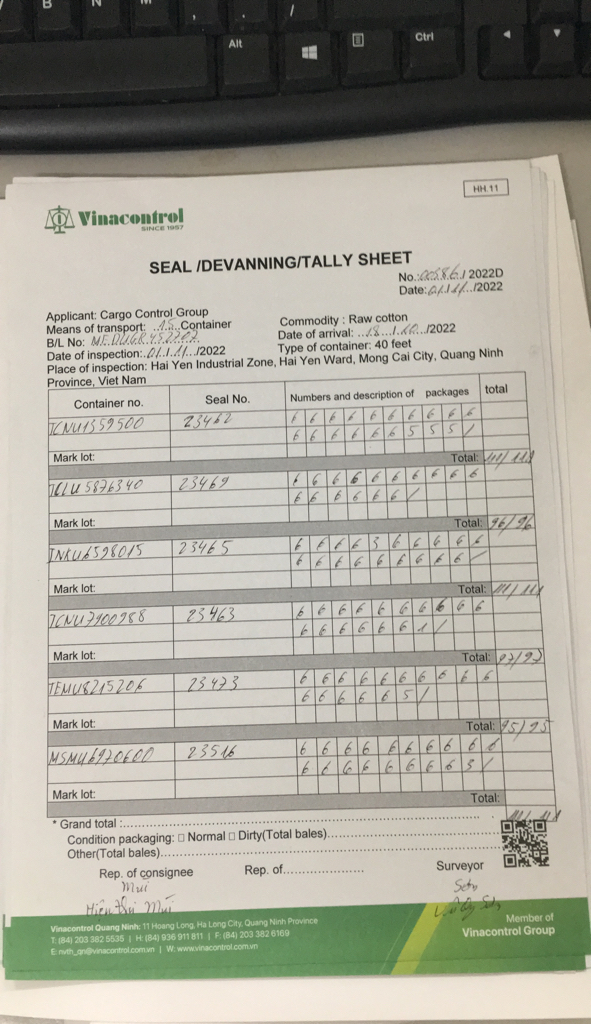 B N M , . /
Alt Ctrl
HH.11
Vinacontrol
SINCE 1957
SEAL /DEVANNING/TALLY SHEET
No.:00586./ 2022D
Date:.01.1.11../2022
Applicant: Cargo Control Group
Commodity : Raw cotton
Means of transport: ..15..Container
Date of arrival: ...18..../.10..../2022
B/L No: MEDUGR452707
Type of container: 40 feet
Date of inspection:.01./.11../2022
Place of inspection: Hai Yen Industrial Zone, Hai Yen Ward, Mong Cai City, Quang Ninh
Province, Viet Nam
Container no. Seal No. Numbers and description of packages total
TCNU1559500 23462 6 6 6 6 6 6 6 6 6 6
6 6 6 6 6 6 5 5 5 /
Mark lot: Total: 111/111
TCLU5876340 23469 6 6 6 6 6 6 6 6 6 6
6 6 6 6 6 6 /
Mark lot: Total: 96/96
INKU6598015 23465 6 6 6 6 3 6 6 6 6 6
6 6 6 6 6 6 6 6 6 /
Mark lot: Total: 111/111
TCNU7900988 23463 6 6 6 6 6 6 6 6 6 6
6 6 6 6 6 6 1 /
Mark lot: Total: 97/97
TEMU8215206 23473 6 6 6 6 6 6 6 6 6 6
6 6 6 6 6 5 /
Mark lot: Total: 95/95
MSMU6970600 23516 6 6 6 6 6 6 6 6 6 6
6 6 6 6 6 6 6 6 3 /
Mark lot: Total:
* Grand total :................ 111/111
Condition packaging: □ Normal □ Dirty(Total bales)................
Other(Total bales)................
Rep. of consignee Rep. of................ Surveyor
Mui
Mùi
Vinacontrol Quang Ninh: 11 Hoang Long, Ha Long City, Quang Ninh Province
T: (84) 203 382 5535 | H: (84) 936 911 811 | F: (84) 203 382 6169
E: nvth_qn@vinacontrol.com.vn | W: www.vinacontrol.com.vn
Member of
Vinacontrol Group